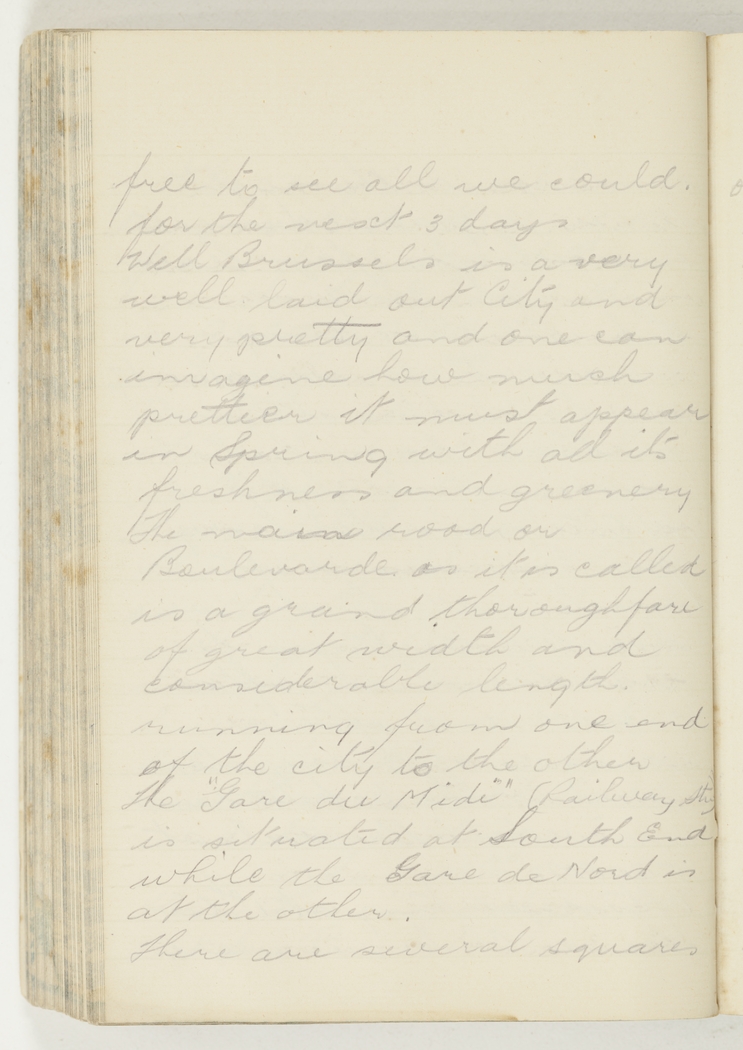 free to see all we could.
for the next 3 days
Well Brussels is a very
well laid out City and
very pretty and one can
imagine how much
prettier it must appear
in Spring with all its
freshness and greenery
The main road or
Boulevarde as it is called
is a grand thoroughfare
of great width and
considerable length.
running from one end
of the city to the other
The "Gare du Midi" (Railway Stn)
is situated at South End
while the Gare de Nord is
at the other.
There are several squares